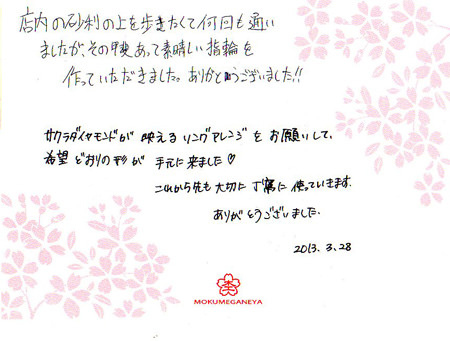 店内の砂利の上を歩きたくて何回も通い
ましたが、その甲斐あって素晴しい指輪を
作っていただきました。ありがとうございました!!
サクラダイヤモンドが 映える リングアレンジ を お願いして、
希望 どおりの形が 手元に来ました♡
これから先も 大切に 丁寧に 使っていきます。
ありがとうございました。
2013.3.28
MOKUMEGANEYA